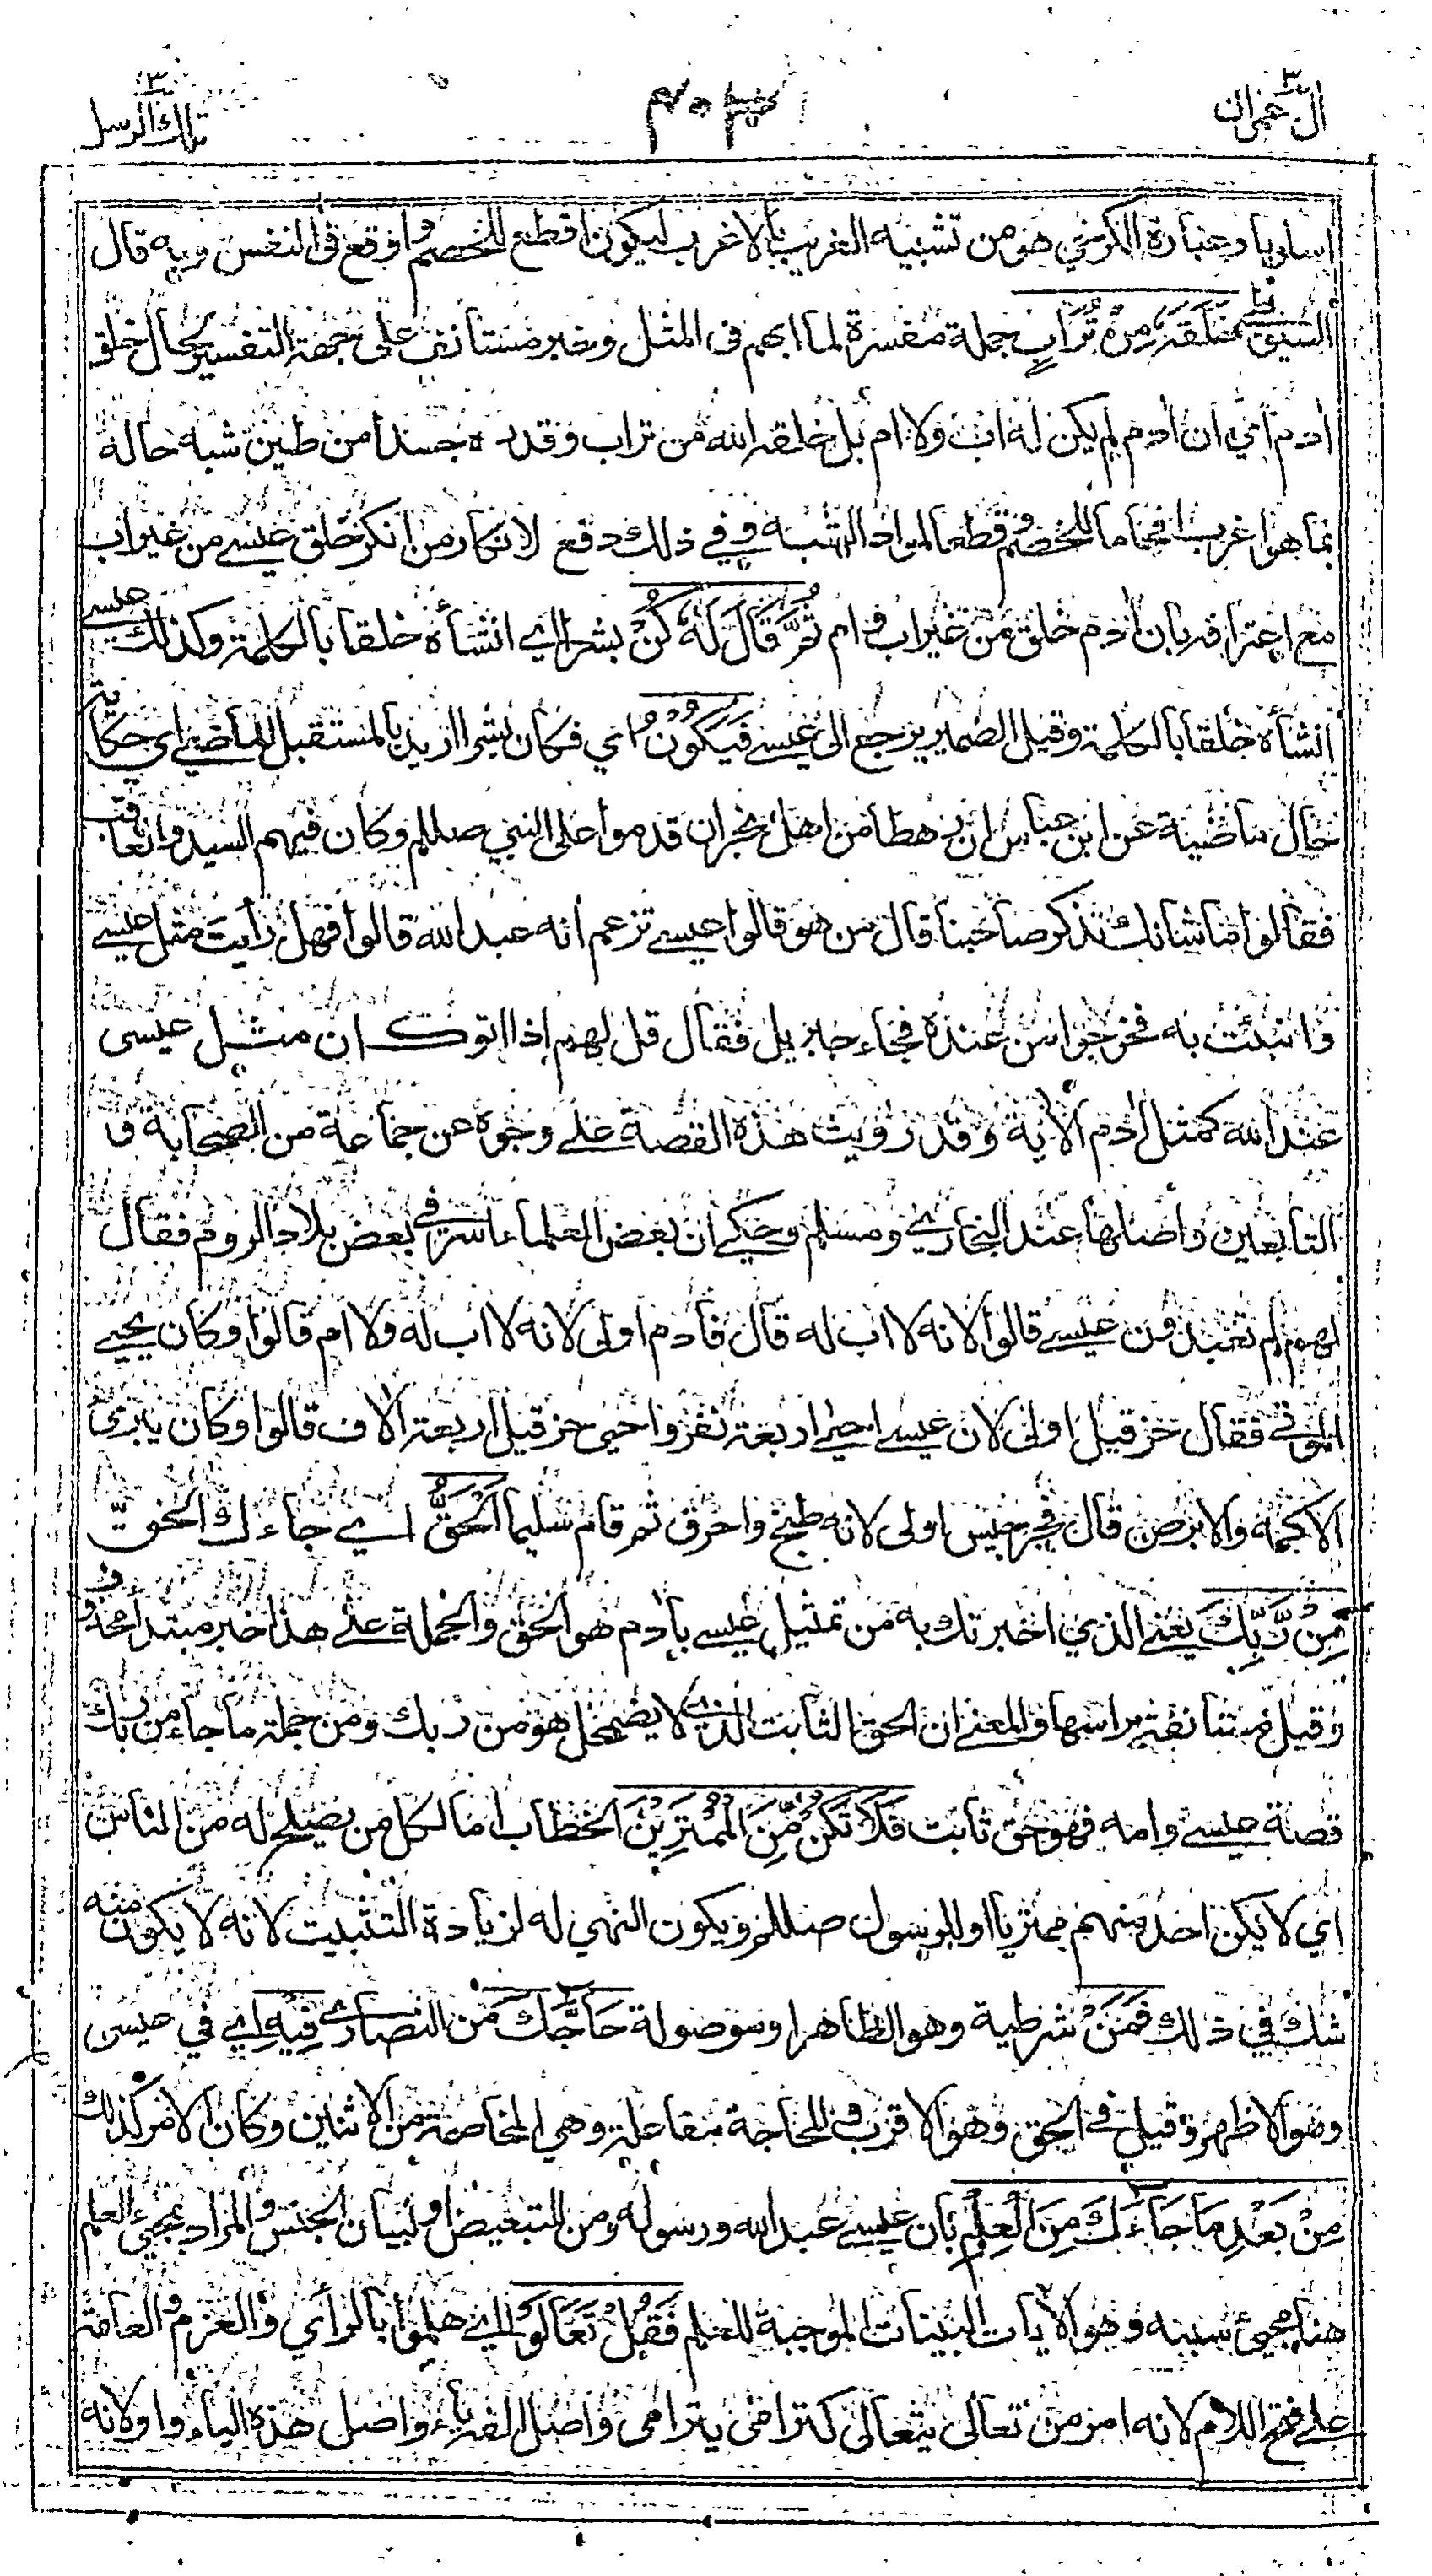 ال عمران ٣
٤٠٣
تلك الرسل ٣
اسلوبا وعبارة الكرخي هو من تشبيه الغريب بالاغرب ليكون اقطع للخصم واوقع في النفس وبه قال
السيوطي خَلَقَهٗ مِنْ تُرَابٍ جملة مفسرة لما ابهم في المثل وخبر مستأنف على جهة التفسير بحال خلق
ادم اي ان ادم لم يكن له اب ولا ام بل خلقه الله من تراب وقدره جسدا من طين شبه حاله
بما هو اغرب افحاما للخصم وقطعا لمواد الشبه وفي ذلك دفع لانكار من انكر خلق عيسے من غير اب
مع اعترافه بان ادم خلق من غير اب وام ثُمَّ قَالَ لَهٗ كُنْ بشرا اي انشأه خلقا بالكلمة وكذلك عيسے
انشأه خلقا بالكلمة وقيل الضمير يرجع الى عيسے فَيَكُوْنُ اي فكان بشرا اريد بالمستقبل الماضي اي حكاية
حال ماضية عن ابن عباس ان رهطا من اهل نجران قدموا على النبي صللم وكان فيهم السيد والعاقب
فقالوا ما شانك تذكر صاحبنا قال من هو قالوا عيسے تزعم انه عبد الله قالوا فهل رأيت مثل عيسے
وانبئت به فخرجوا من عنده فجاء جبريل فقال قل لهم اذا اتوك ان مثل عيسى
عند الله كمثل ادم الاية وقد رويت هذه القصة علے وجوه عن جماعة من الصحابة و
التابعين واصلها عند البخاري ومسلم وحكي ان بعض العلماء اسر في بعض بلاد الروم فقال
لهم لم تعبدون عيسے قالوا لانه لا اب له قال فادم اولى لانه لا اب له ولا ام قالوا وكان يحيے
الموتى فقال حزقيل اولى لان عيسے احيے اربعة نفر واحيى حزقيل اربعة الاف قالوا وكان يبرئ
الاكمه والابرص قال فجرجيس اولى لانه طبخ واحرق ثم قام سليما اَلْحَقُّ اي جاءك الحق
مِنْ رَّبِّكَ يعني الذي اخبرتك به من تمثيل عيسے بادم هو الحق والجملة علے هذا خبر مبتدأ محذوف
وقيل مستأنفة برأسها والمعنى ان الحق الثابت الذي لا يضمحل هو من ربك ومن جملة ما جاء من ربك
قصة عيسے وامه فهو حق ثابت فَلَا تَكُنْ مِّنَ الْمُمْتَرِيْنَ الخطاب اما لكل من يصلح له من الناس
اي لا يكن احد منهم ممتريا او للرسول صللم ويكون النهي له لزيادة التثبيت لانه لا يكون منه
شك في ذلك فَمَنْ شرطية وهو الظاهر او موصولة حَآجَّكَ من النصارى فِيْهِ اي في عيسى
وهو الاظهر وقيل في الحق وهو الاقرب والمحاجة مفاعلة وهي المخاصمة من الاثنين وكان الامر كذلك
مِنْ بَعْدِ مَا جَآءَكَ مِنَ الْعِلْمِ بان عيسے عبد الله ورسوله ومن للتبعيض او لبيان الجنس والمراد بمجيء العلم
هنا مجيء سببه وهو الايات البينات الموجبة للعلم فَقُلْ تَعَالَوْا اي هلموا بالرأي والعزم والعامة
علے فتح اللام لانه امر من تعالى يتعالى كترامى يترامى واصل الفه ياء واصل هذه الياء واو لانه